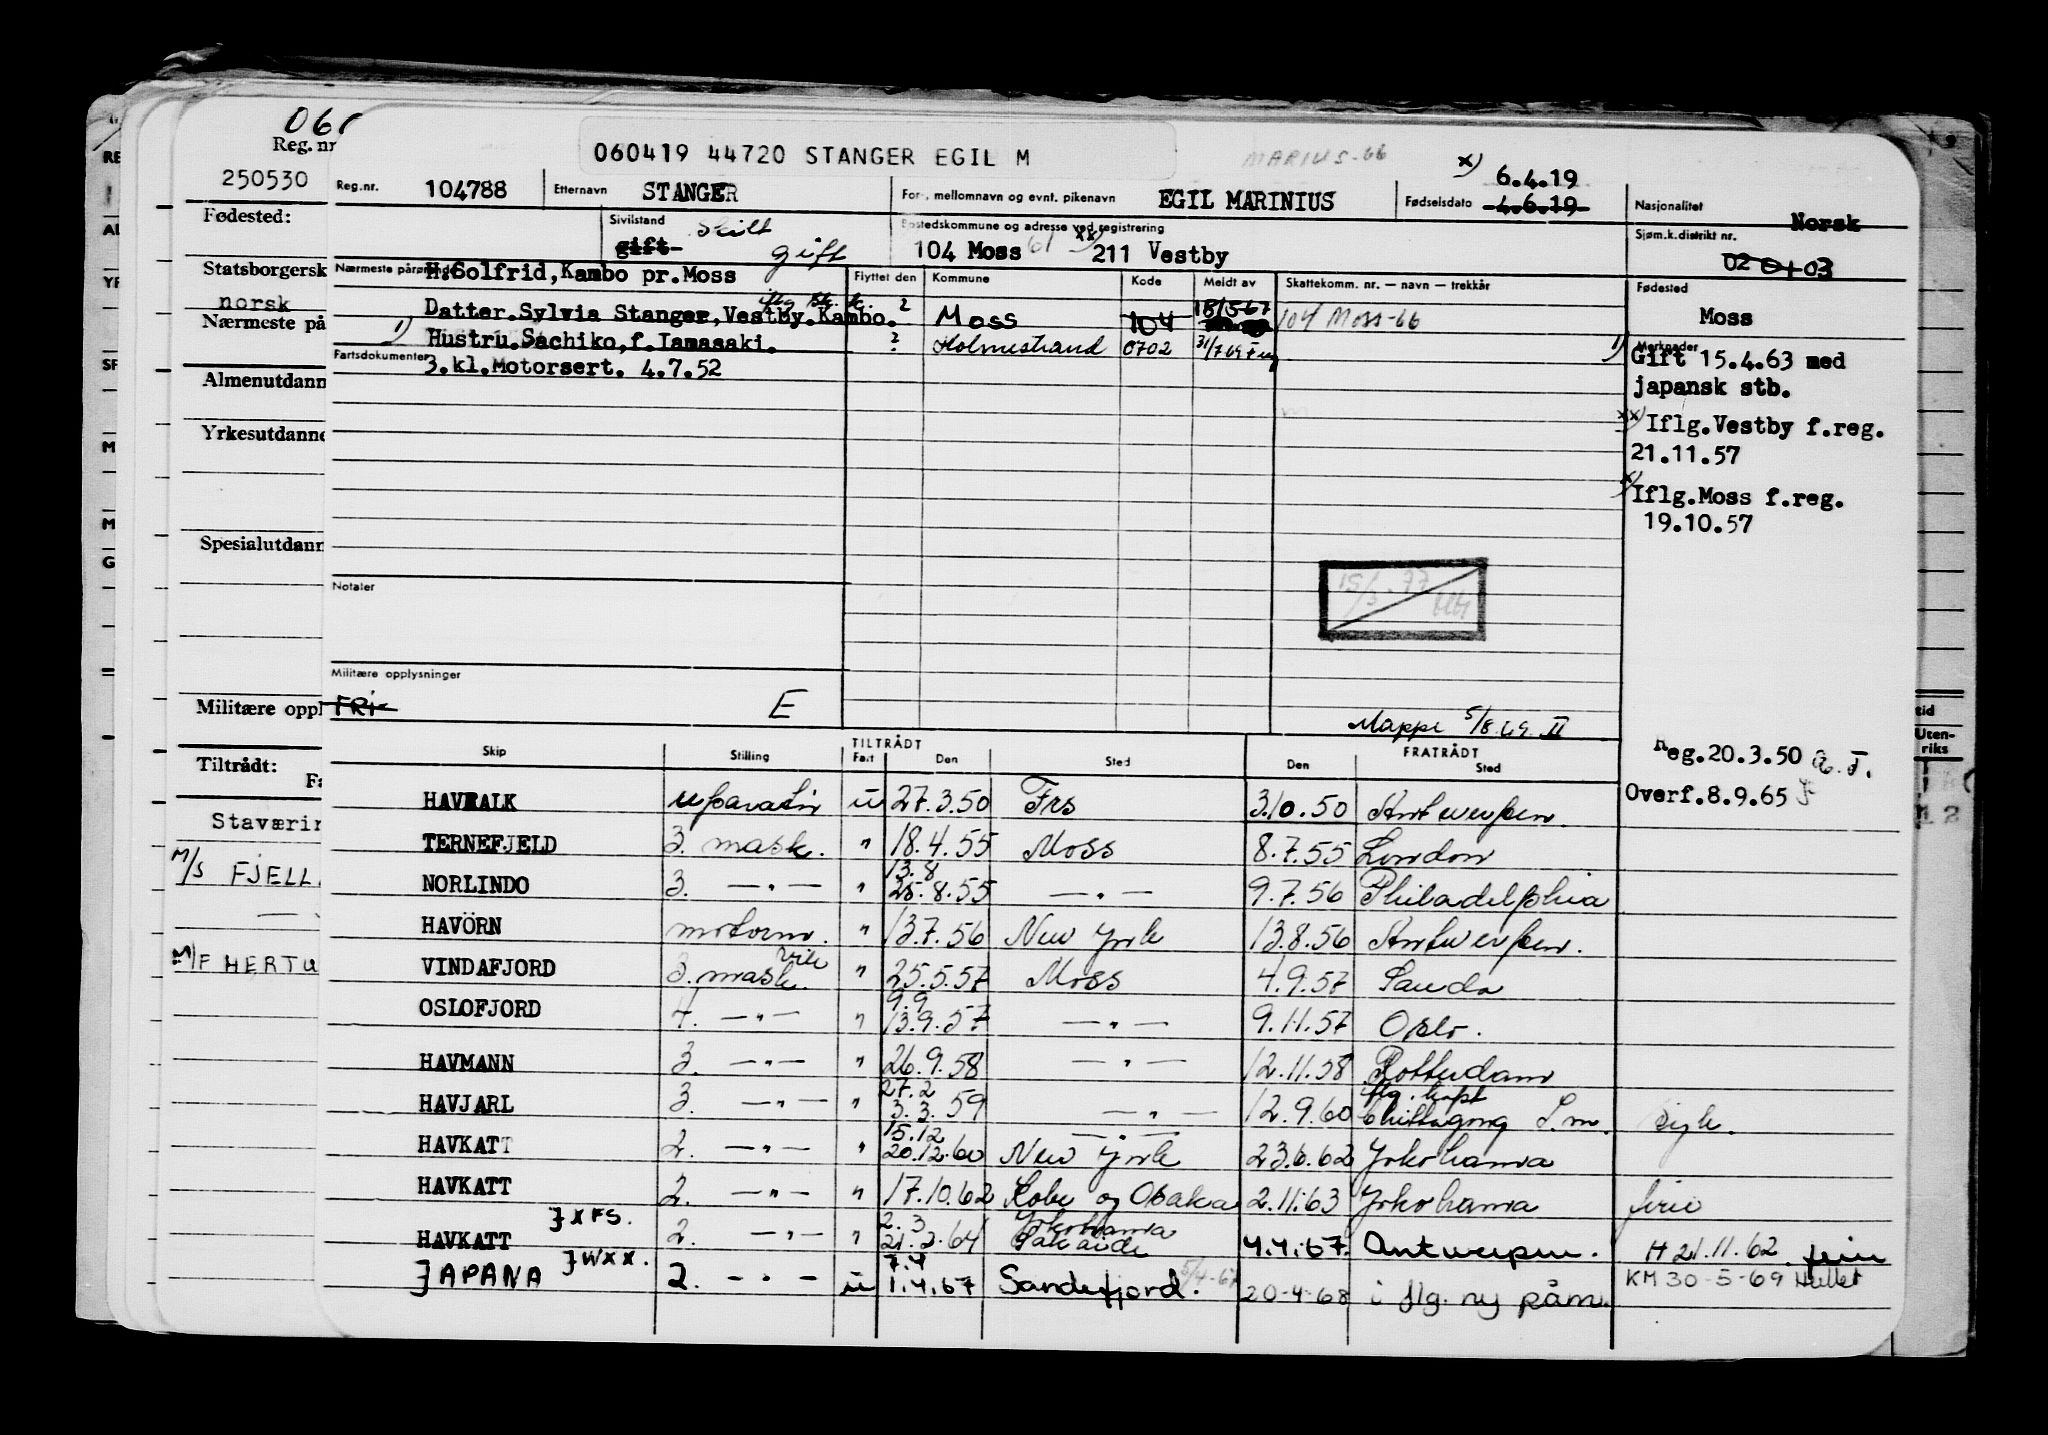 060419 44720 STANGER EGIL M
MARIUS-66
Reg. nr
250530
Reg.nr. 104788
Etternavn STANGER
For-, mellomnavn og evnt. pikenavn EGIL MARINIUS
x) 6.4.19
Fødselsdato 4.6.19
Nasjonalitet Norsk
Fødested:
Sivilstand gift skilt gift
Bostedskommune og adresse ved registrering
104 Moss 61 xx) 211 Vestby
Sjøm.k.distrikt nr.
02 01 03
Statsborgersk
norsk
Nærmeste pårørende H.Solfrid, Kambo pr.Moss
Flyttet den Kommune Kode Meldt av Skattekomm. nr. — navn — trekkår
Fødested
Moss
Datter.Sylvia Stanger,Vestby.Kambo. ? Moss 104 18/5-67 104 Moss-66
Nærmeste på
1) Hustru.Sachiko,f.Iamasaki. ? Holmestrand 0702
Fartsdokumenter 3.kl.Motorsert. 4.7.52
Merknader
1) Gift 15.4.63 med
japansk stb.
xx) Iflg.Vestby f.reg.
21.11.57
x) Iflg.Moss f.reg.
19.10.57
Almenutdann
Yrkesutdanne
Spesialutdann
Notater
Militære opplysninger
Militære oppl
FRI E
Mappe 5/8.69. II
Reg.20.3.50
Overf.8.9.65
Tiltrådt:
Staværin
M/S FJELL
M/F HERTU
Skip Stilling TILTRÅDT Fart Den Sted FRATRÅDT Den Sted
HAVRALK reparatør u 27.3.50 Frs 3.10.50 Antwerpen.
TERNEFJELD 3. mask. " 18.4.55 Moss 8.7.55 London
NORLINDO 3. —"— " 13.8 25.8.55 —"— 9.7.56 Philadelphia
HAVÖRN motorm. " 13.7.56 New York 13.8.56 Antwerpen.
VINDAFJORD 3. mask. " 25.5.57 Moss 4.9.57 Sauda
OSLOFJORD 4. —"— " 9.9 13.9.57 —"— 9.11.57 Oslo.
HAVMANN 3. —"— " 26.9.58 —"— 12.11.58 Rotterdam
HAVJARL 3. —"— " 27.2 3.3.59 —"— 12.9.60 iflg. kapt Chittagong
HAVKATT 2. —"— " 15.12 20.12.60 New York 23.6.62 Yokohama
HAVKATT 2. —"— " 17.10.62 Kobe og Osaka 2.11.63 Yokohama ferie
}XFS.
HAVKATT 2. —"— " 2.3 21.2.64 Yokohama 4.4.67. Antwerpen. H 21.11.62 ferie
}WXX.
JAPANA 2. —"— u 7.4 1.4.67 Sandefjord. 5/4-67 20-4-68 iflg. ny påm. KM 30-5-69
tid
Uten-
riks